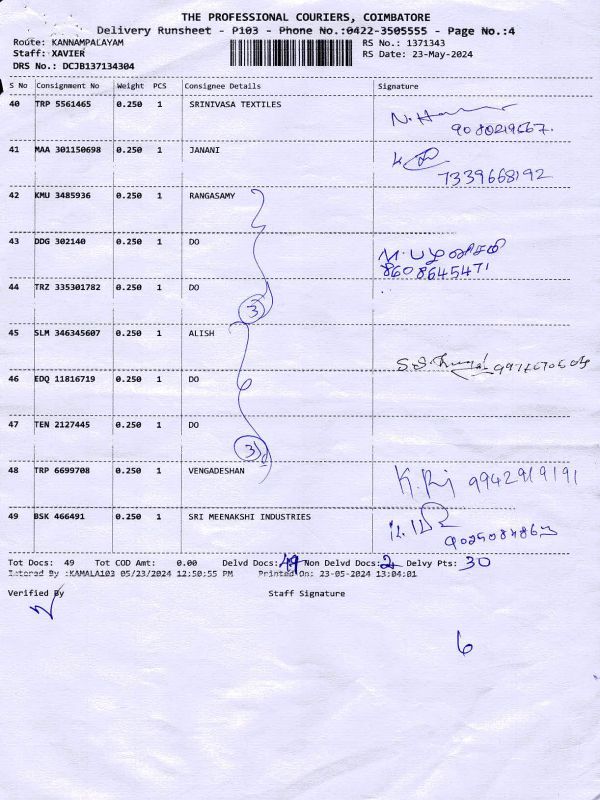 THE PROFESSIONAL COURIERS, COIMBATORE
Delivery Runsheet - P103 - Phone No.:0422-3505555 - Page No.:4
Route: KANNAMPALAYAM RS No.: 1371343
Staff: XAVIER RS Date: 23-May-2024
DRS No.: DCJB137134304
S No Consignment No Weight PCS Consignee Details Signature
40 TRP 5561465 0.250 1 SRINIVASA TEXTILES
41 MAA 301150698 0.250 1 JANANI
7339668192
42 KMU 3485936 0.250 1 RANGASAMY
43 DDG 302140 0.250 1 DO
8608645471
44 TRZ 335301782 0.250 1 DO
3
45 SLM 346345607 0.250 1 ALISH
46 EDQ 11816719 0.250 1 DO
47 TEN 2127445 0.250 1 DO
3
48 TRP 6699708 0.250 1 VENGADESHAN
9942919191
49 BSK 466491 0.250 1 SRI MEENAKSHI INDUSTRIES
Tot Docs: 49 Tot COD Amt: 0.00 Delvd Docs: Non Delvd Docs: Delvy Pts: 30
Entered By :KAMALA103 05/23/2024 12:50:55 PM Printed On: 23-05-2024 13:04:01
Verified By Staff Signature
6